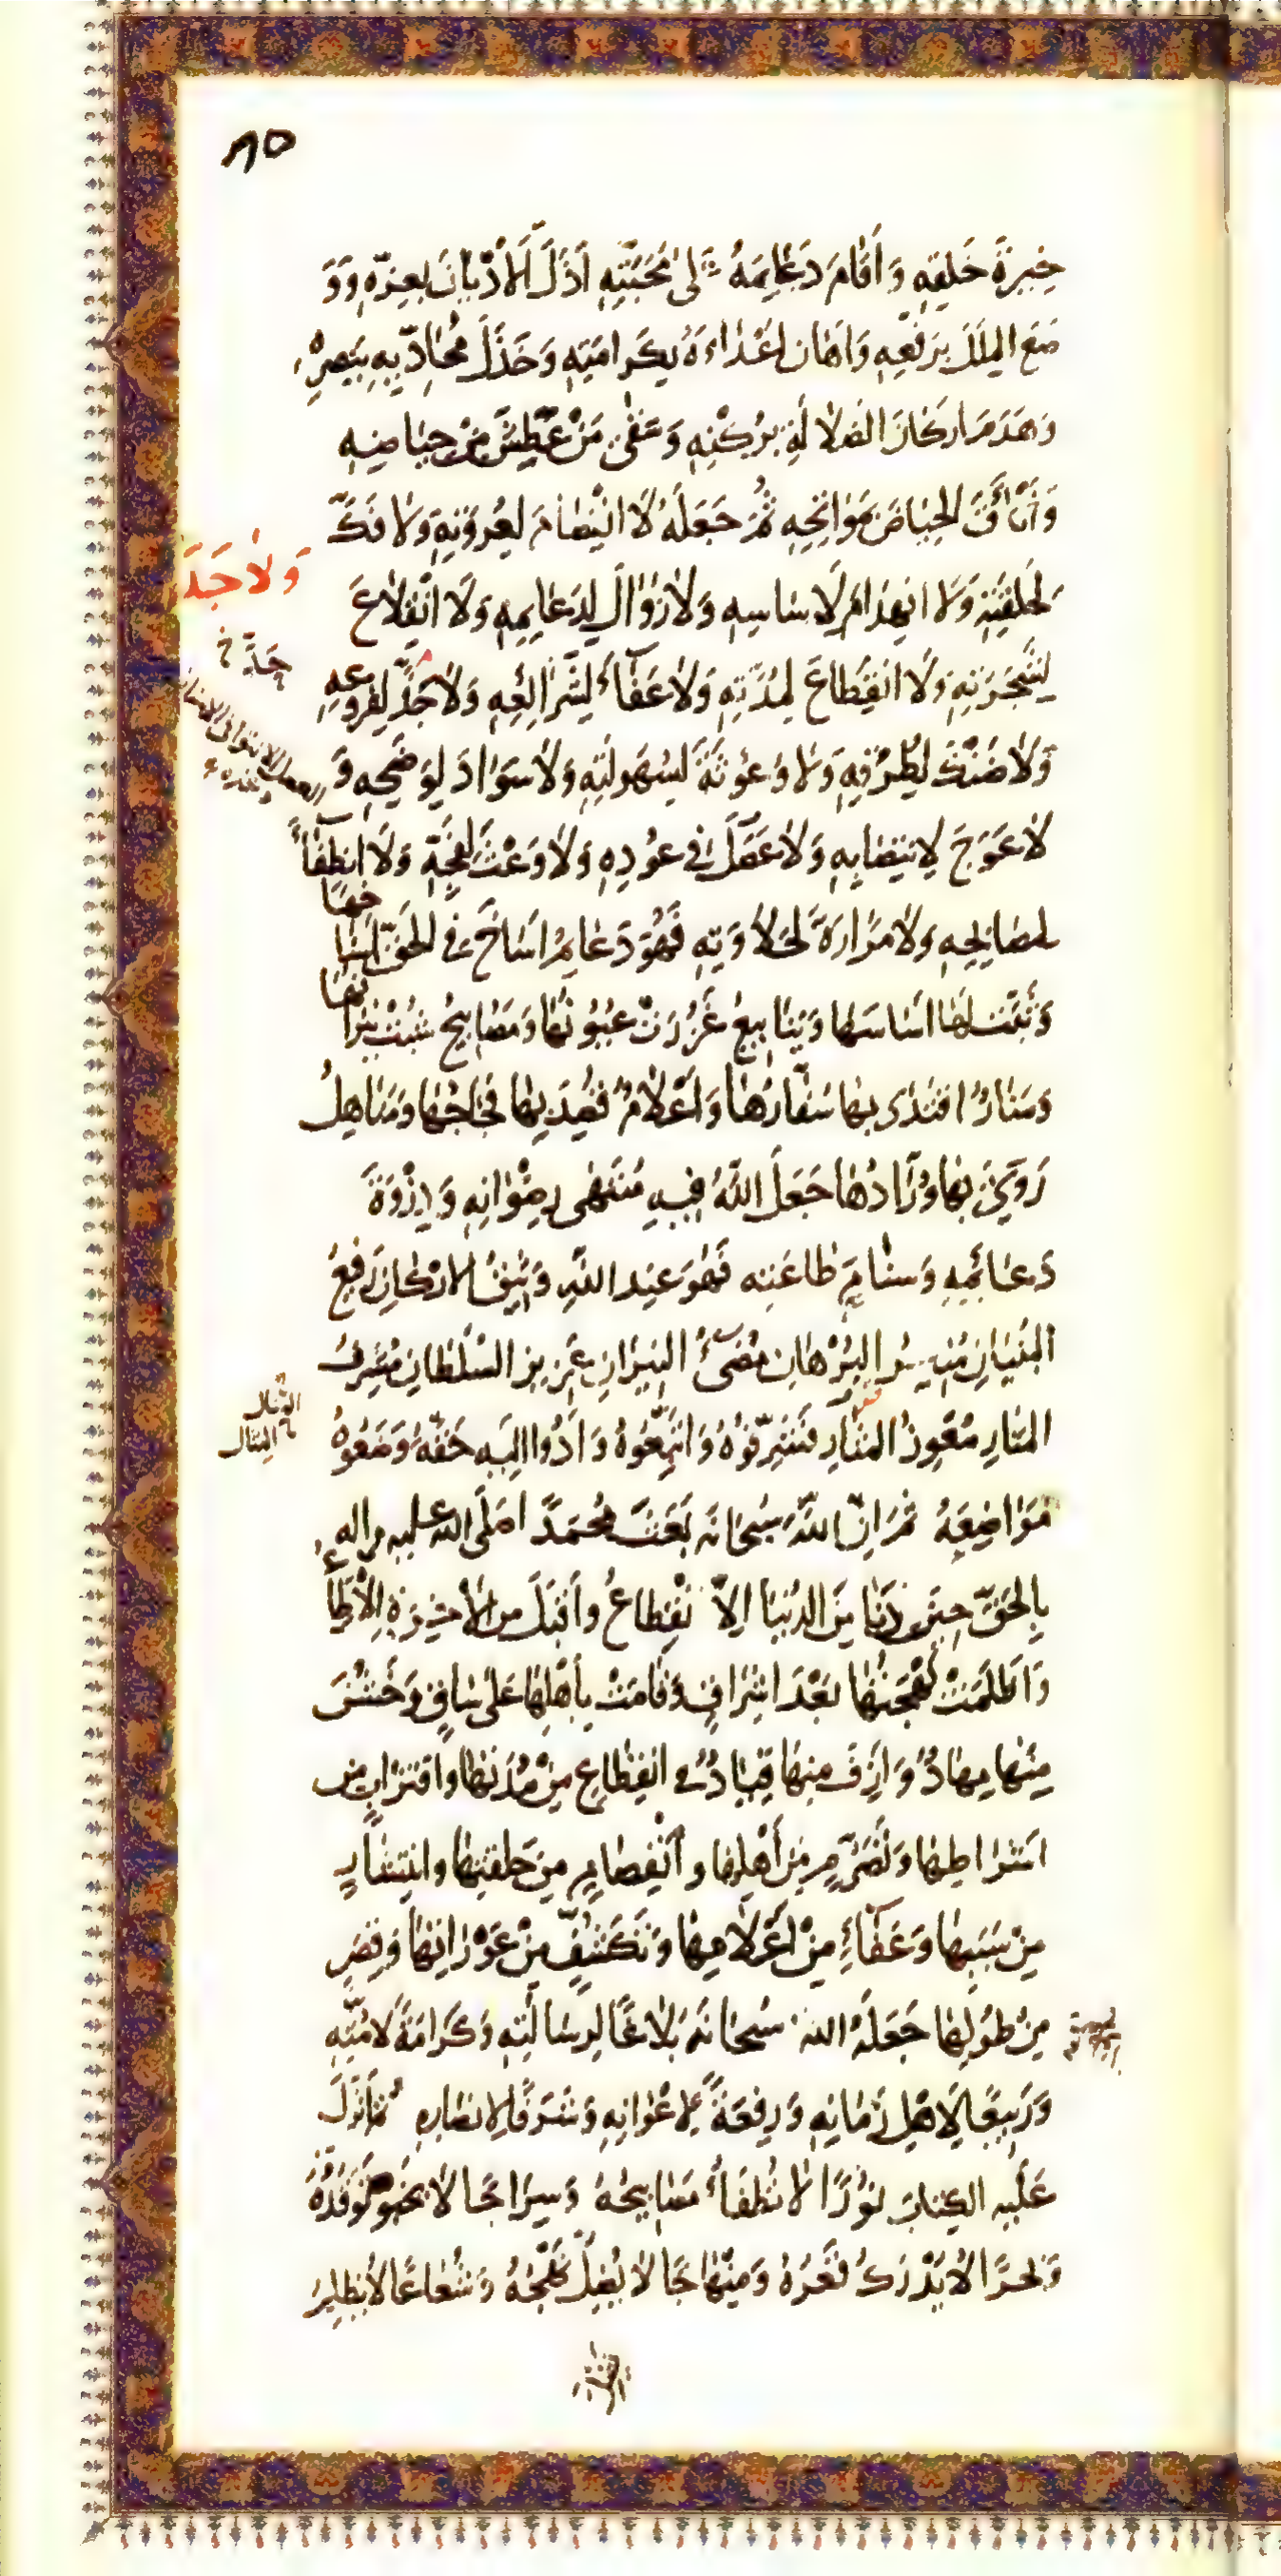 ٨٥
خِيرَةَ خَلْقِهِ وَ أَقَامَ دَعَائِمَهُ عَلَىٰ مَحَبَّتِهِ أَذَلَّ الْأَدْيَانَ بِعِزِّهِ وَ وَ
ضَعَ الْمِلَلَ بِرَفْعِهِ وَ أَهَانَ أَعْدَاءَهُ بِكَرَامَتِهِ وَ خَذَلَ مُحَادِّيهِ بِنَصْرِهِ
وَ هَدَمَ أَرْكَانَ الضَّلَالَةِ بِرُكْنِهِ وَ سَقَىٰ مَنْ عَطِشَ مِنْ حِيَاضِهِ
وَ أَتْأَقَ الْحِيَاضَ بِمَوَاتِحِهِ ثُمَّ جَعَلَهُ لَا انْفِصَامَ لِعُرْوَتِهِ وَ لَا فَكَّ
لِحَلْقَتِهِ وَ لَا انْهِدَامَ لِأَسَاسِهِ وَ لَا زَوَالَ لِدَعَائِمِهِ وَ لَا انْقِلَاعَ
لِشَجَرَتِهِ وَ لَا انْقِطَاعَ لِمُدَّتِهِ وَ لَا عَفَاءَ لِشَرَائِعِهِ وَ لَا جَذَّ لِفُرُوعِهِ
وَ لَا ضَنْكَ لِطُرُقِهِ وَ لَا وُعُوثَةَ لِسُهُولَتِهِ وَ لَا سَوَادَ لِوَضَحِهِ وَ
لَا عِوَجَ لِانْتِصَابِهِ وَ لَا عَصَلَ فِي عُودِهِ وَ لَا وَعْثَ لِفَجِّهِ وَ لَا انْطِفَاءَ
لِمَصَابِيحِهِ وَ لَا مَرَارَةَ لِحَلَاوَتِهِ فَهُوَ دَعَائِمُ أَسَاخَ فِي الْحَقِّ أَسْنَاخَهَا
وَ ثَبَّتَ لَهَا أَسَاسَهَا وَ يَنَابِيعُ غَزُرَتْ عُيُونُهَا وَ مَصَابِيحُ شُبَّتْ نِيرَانُهَا
وَ مَنَارٌ اقْتَدَىٰ بِهَا سُفَّارُهَا وَ أَعْلَامٌ قُصِدَ بِهَا فِجَاجُهَا وَ مَنَاهِلُ
رَوِيَ بِهَا وُرَّادُهَا جَعَلَ اللَّهُ فِيهِ مُنْتَهَى رِضْوَانِهِ وَ ذِرْوَةَ
دَعَائِمِهِ وَ سَنَامَ طَاعَتِهِ فَهُوَ عِنْدَ اللَّهِ وَثِيقُ الْأَرْكَانِ رَفِيعُ
الْبُنْيَانِ مُنِيرُ الْبُرْهَانِ مُضِيءُ النِّيرَانِ عَزِيزُ السُّلْطَانِ مُشْرِفُ
الْمَنَارِ مُعْوِذُ الْمَثَارِ فَشَرِّفُوهُ وَ اتَّبِعُوهُ وَ أَدُّوا إِلَيْهِ حَقَّهُ وَ ضَعُوهُ
مَوَاضِعَهُ ثُمَّ إِنَّ اللَّهَ سُبْحَانَهُ بَعَثَ مُحَمَّدًا صَلَّى اللَّهُ عَلَيْهِ وَ آلِهِ
بِالْحَقِّ حِينَ دَنَا مِنَ الدُّنْيَا الِانْقِطَاعُ وَ أَقْبَلَ مِنَ الْآخِرَةِ الِاطِّلَاعُ
وَ أَظْلَمَتْ بَهْجَتُهَا بَعْدَ إِشْرَاقٍ وَ قَامَتْ بِأَهْلِهَا عَلَىٰ سَاقٍ وَ خَشُنَ
مِنْهَا مِهَادٌ وَ أَزِفَ مِنْهَا قِيَادٌ فِي انْقِطَاعٍ مِنْ مُدَّتِهَا وَ اقْتِرَابٍ مِنْ
أَشْرَاطِهَا وَ تَصَرُّمٍ مِنْ أَهْلِهَا وَ انْفِصَامٍ مِنْ حَلْقَتِهَا وَ انْتِشَارٍ
مِنْ سَبَبِهَا وَ عَفَاءٍ مِنْ أَعْلَامِهَا وَ تَكَشُّفٍ مِنْ عَوْرَاتِهَا وَ قِصَرٍ
مِنْ طُولِهَا جَعَلَهُ اللَّهُ سُبْحَانَهُ بَلَاغًا لِرِسَالَتِهِ وَ كَرَامَةً لِأُمَّتِهِ
وَ رَبِيعًا لِأَهْلِ زَمَانِهِ وَ رِفْعَةً لِأَعْوَانِهِ وَ شَرَفًا لِأَنْصَارِهِ ثُمَّ أَنْزَلَ
عَلَيْهِ الْكِتَابَ نُورًا لَا تُطْفَأُ مَصَابِيحُهُ وَ سِرَاجًا لَا يَخْبُو تَوَقُّدُهُ
وَ بَحْرًا لَا يُدْرَكُ قَعْرُهُ وَ مِنْهَاجًا لَا يُضِلُّ نَهْجُهُ وَ شُعَاعًا لَا يُظْلِمُ
وَ لَا جَذَّ
جَدَّ خ
المثال